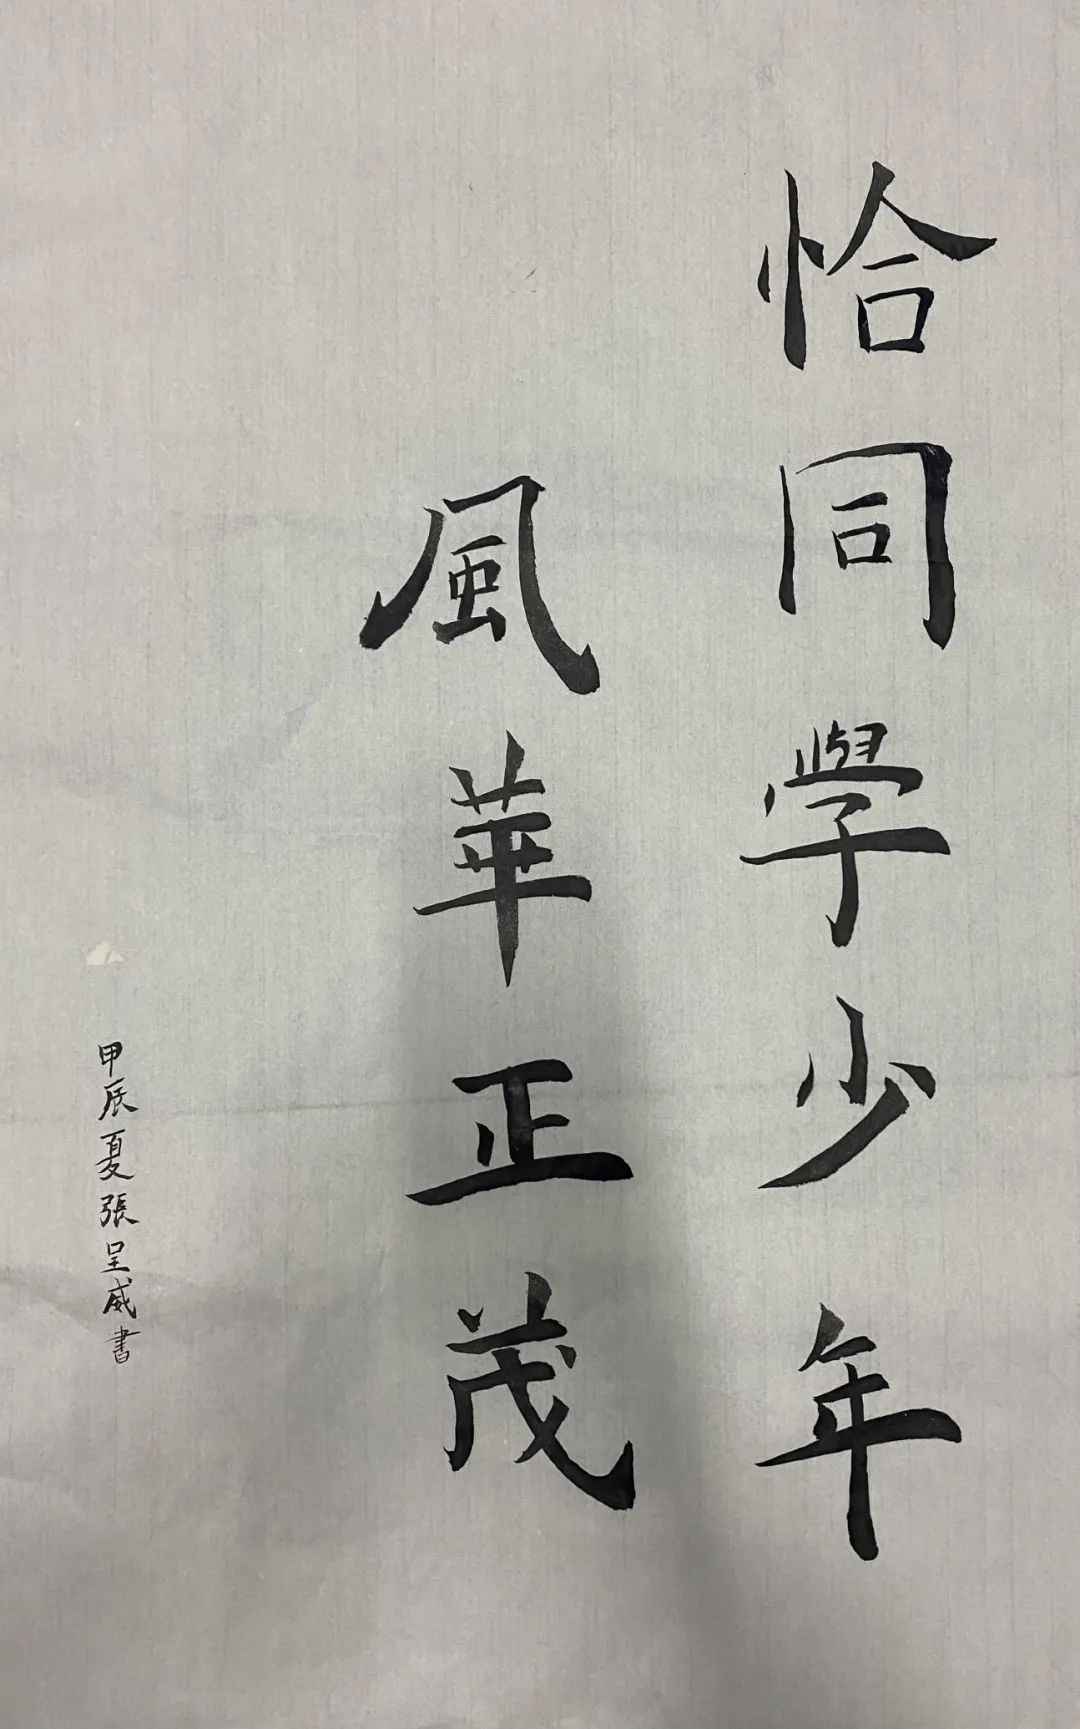 恰同學少年
風華正茂
甲辰夏張呈威書